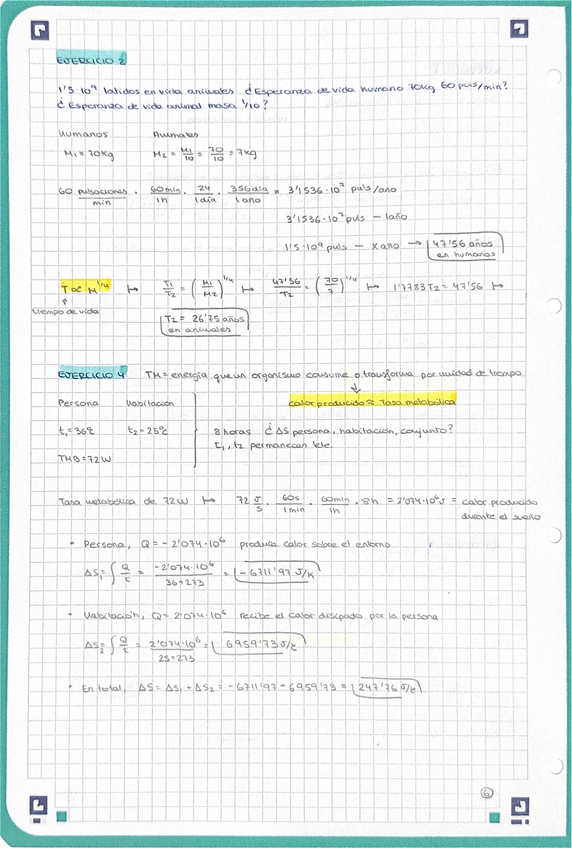 EJERCICIO 2
1'5·10⁹ latidos en vida animales ¿Esperanza de vida humano 70kg, 60 puls/min?
¿Esperanza de vida animal masa 1/10?
Humanos Animales
M₁ = 70kg M₂ = M₁/10 = 70/10 = 7kg
60 pulsaciones/min · 60min/1h · 24/1día · 356día/1año = 3'1536·10⁷ puls/año
3'1536·10⁷ puls — 1año
1'5·10⁹ puls — x año → 47'56 años en humanos
T ∝ M^1/4 ↦ T₁/T₂ = (M₁/M₂)^1/4 ↦ 47'56/T₂ = (70/7)^1/4 ↦ 1'7783 T₂ = 47'56 ↦
tiempo de vida
T₂ = 26'75 años en animales
EJERCICIO 4 TM = energía que un organismo consume o transforma por unidad de tiempo
↓
Persona Habitación calor producido ≈ Tasa metabólica
t₁ = 36ºC t₂ = 25ºC 8 horas ¿ΔS persona, habitación, conjunto?
t₁, t₂ permanecen cte.
TMB = 72W
Tasa metabólica de 72W ↦ 72 J/s · 60s/1min · 60min/1h · 8h = 2'074·10⁶ J = calor producido
durante el sueño
· Persona, Q = -2'074·10⁶ produce calor sobre el entorno
ΔS₁ = ∫ Q/t = -2'074·10⁶/36+273 = -6711'97 J/K
· Habitación, Q = 2'074·10⁶ recibe el calor disipado por la persona
ΔS₂ = ∫ Q/t = 2'074·10⁶/25+273 = 6959'73 J/k
· En total, ΔS = ΔS₁ + ΔS₂ = -6711'97 + 6959'73 = 247'76 J/k
6